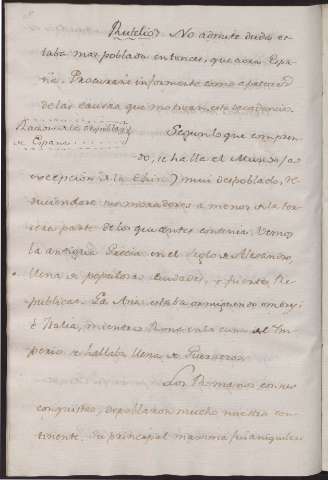 Rutelios. No admite duda es-
taba mas poblada entonces, que aora Espa-
ña. Procuraré informarte como a pariente
de las causas que motivan esta decadencia.
Razon de la despoblaⁿ
de España
Segun lo que compren-
do, se halla el Mundo (a
excepcion de la China) mui despoblado, re-
duciendose sus moradores a menos de la ter-
cera parte de los que antes contenia. Vemos
la antigua Grecia en el siglo de Alexandro,
llena de populosas Ciudades, y fuertes Re-
publicas. La Asia estaba
è Italia, mientras Roma era cuna del Im-
perio se hallaba llena de Guerreros.
Los Romanos con sus
conquistas, despoblaron mucho nuestro con-
tinente, su principal maxima fué aniquilar